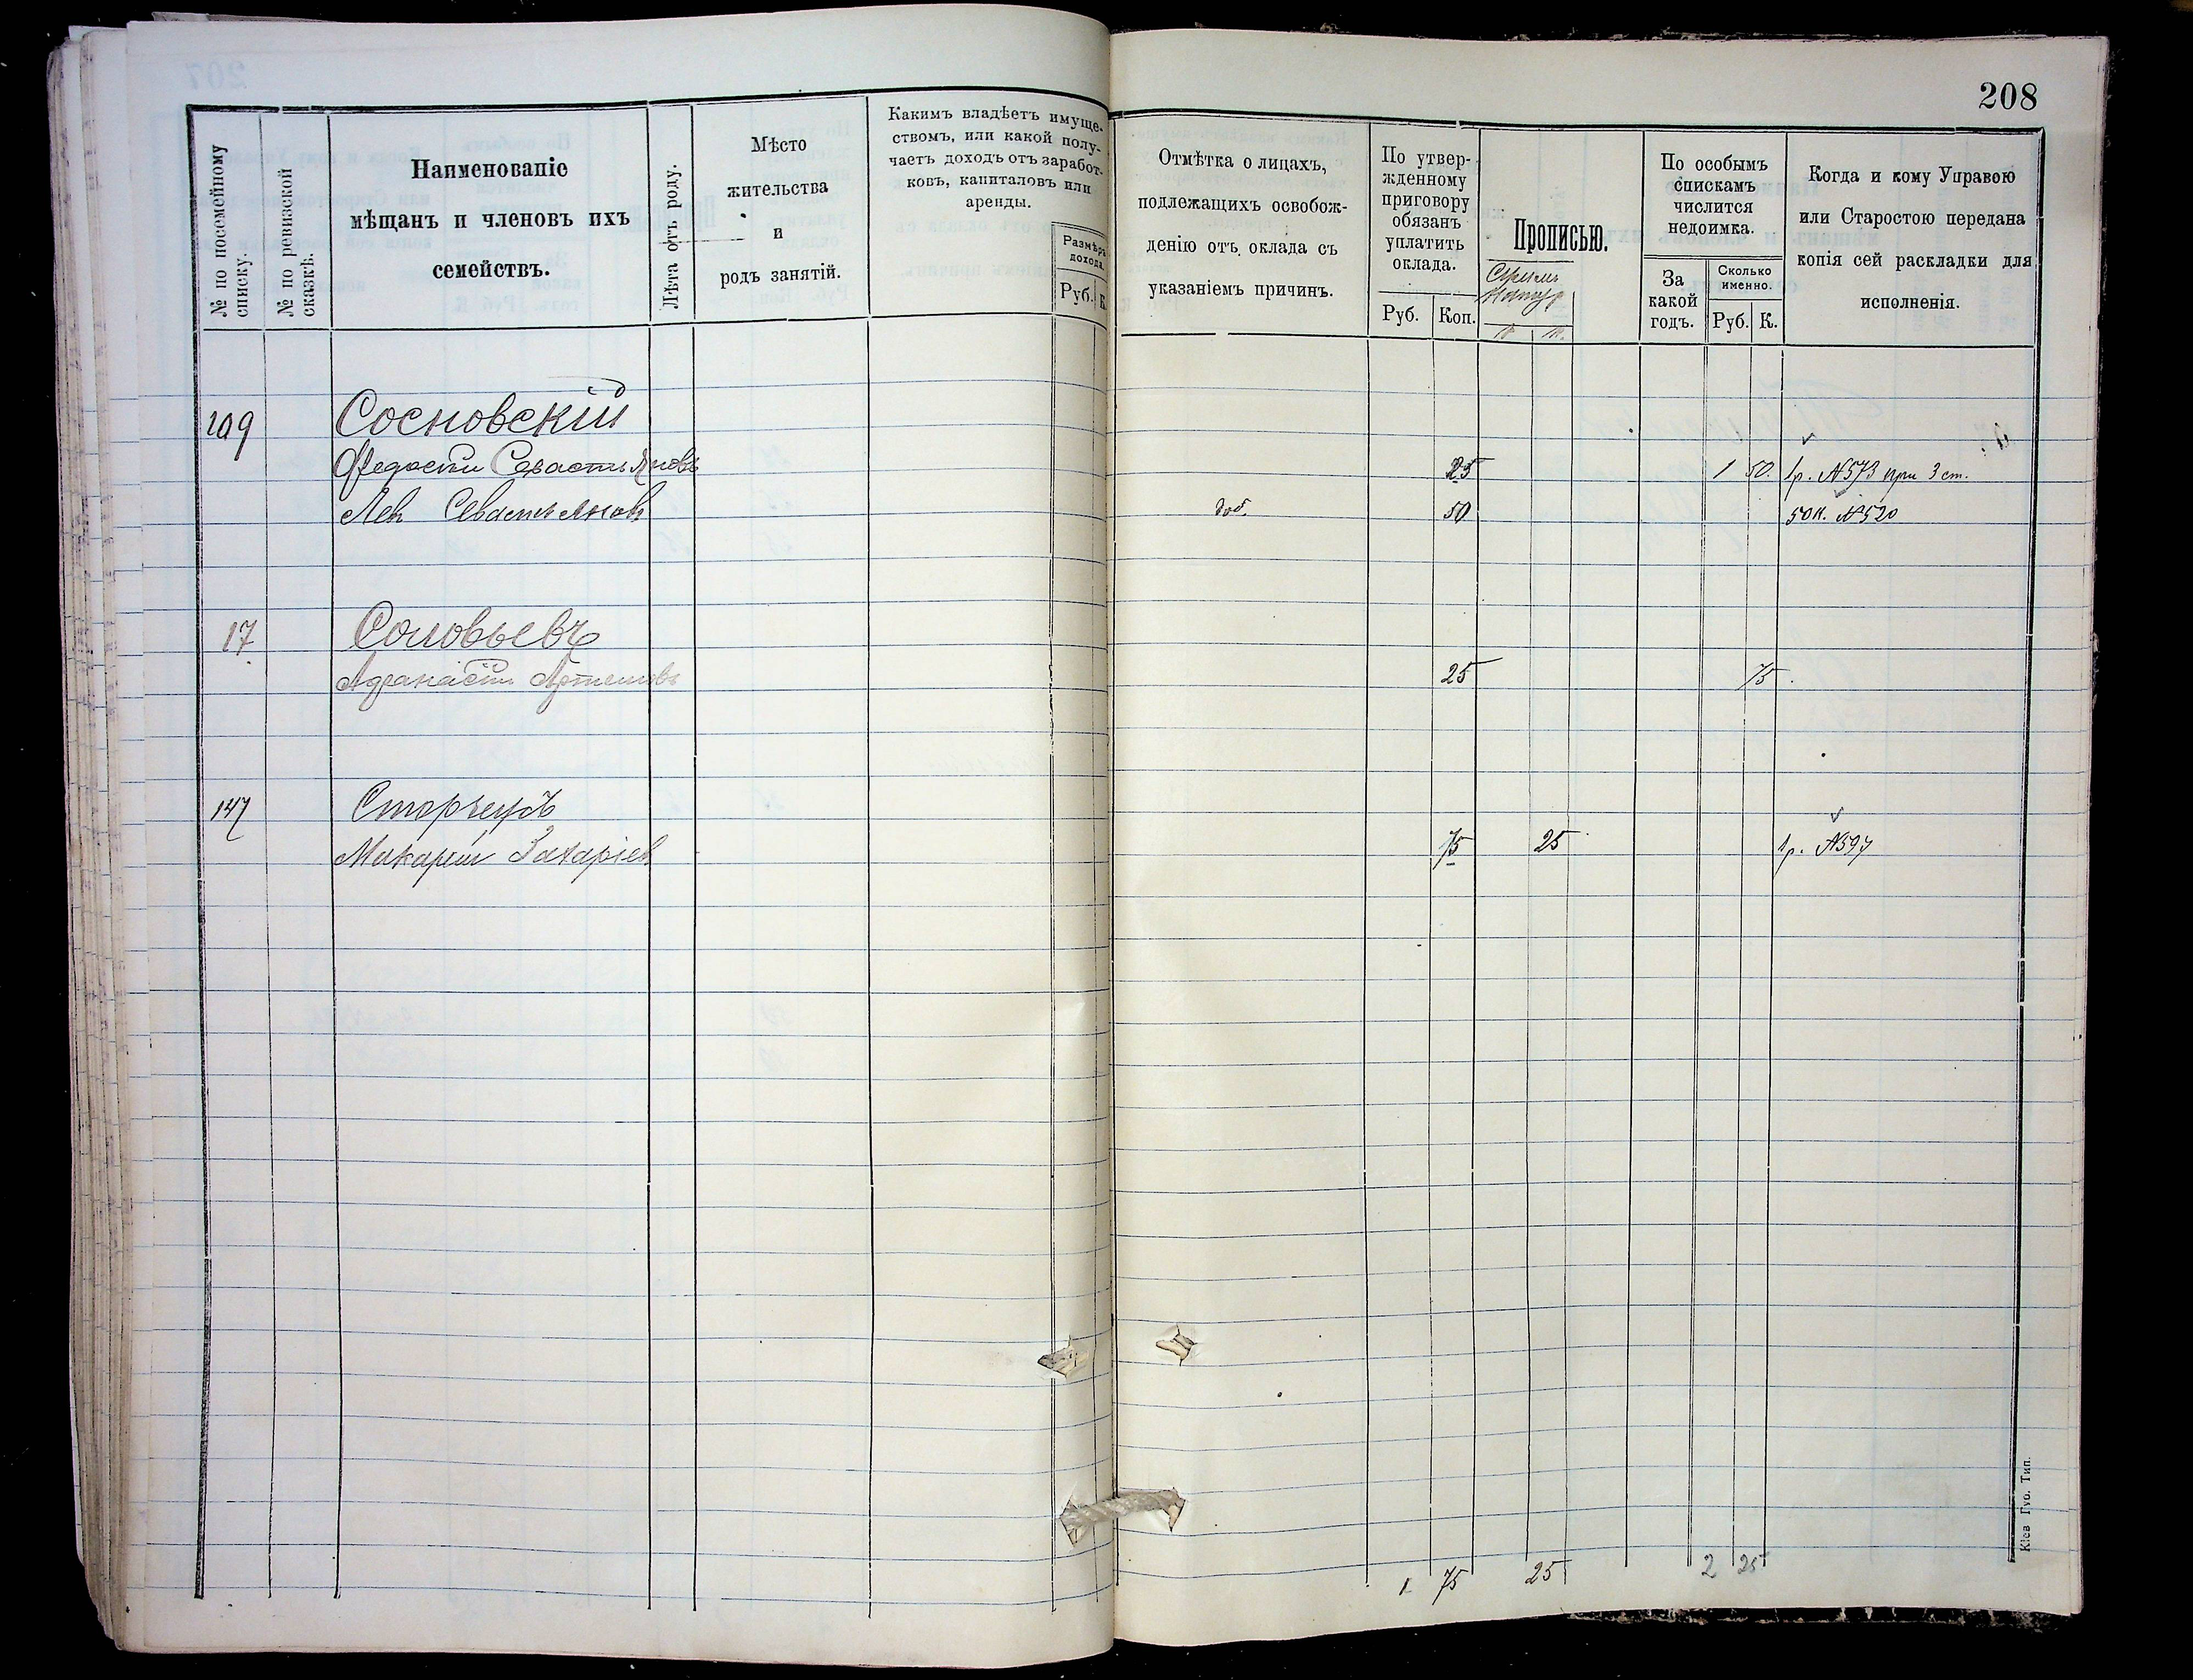 208
№ по посемейному списку.
№ по ревизской сказкѣ.
Наименованіе
мѣщанъ и членовъ ихъ
семействъ.
Лѣта отъ роду.
Мѣсто
жительства
и
родъ занятій.
Какимъ владѣетъ имуще-
ствомъ, или какой полу-
чаетъ доходъ отъ заработ-
ковъ, капиталовъ или
аренды.
Размѣръ
дохода.
Руб. К.
Отмѣтка о лицахъ,
подлежащихъ освобож-
денію отъ оклада съ
указаніемъ причинъ.
По утвер-
жденному
приговору
обязанъ
уплатить
оклада.
Руб. Коп.
Прописью.
По особымъ
спискамъ
числится
недоимка.
За
какой
годъ.
Сколько
именно.
Руб. К.
Когда и кому Управою
или Старостою передана
копія сей раскладки для
исполненія.
109 Сосновскій
Федосій Севастьяновъ 25 1 50. 1р. №573 при 3 ст.
Лев Севастьянов доб. 50 50 к. №520
17 Соловьевъ
Афанасій Артемовъ 25 75
147
Макарій Захаріев 75 25 1р. №597
1 75 25 2 25
Кіев Губ. Тип.